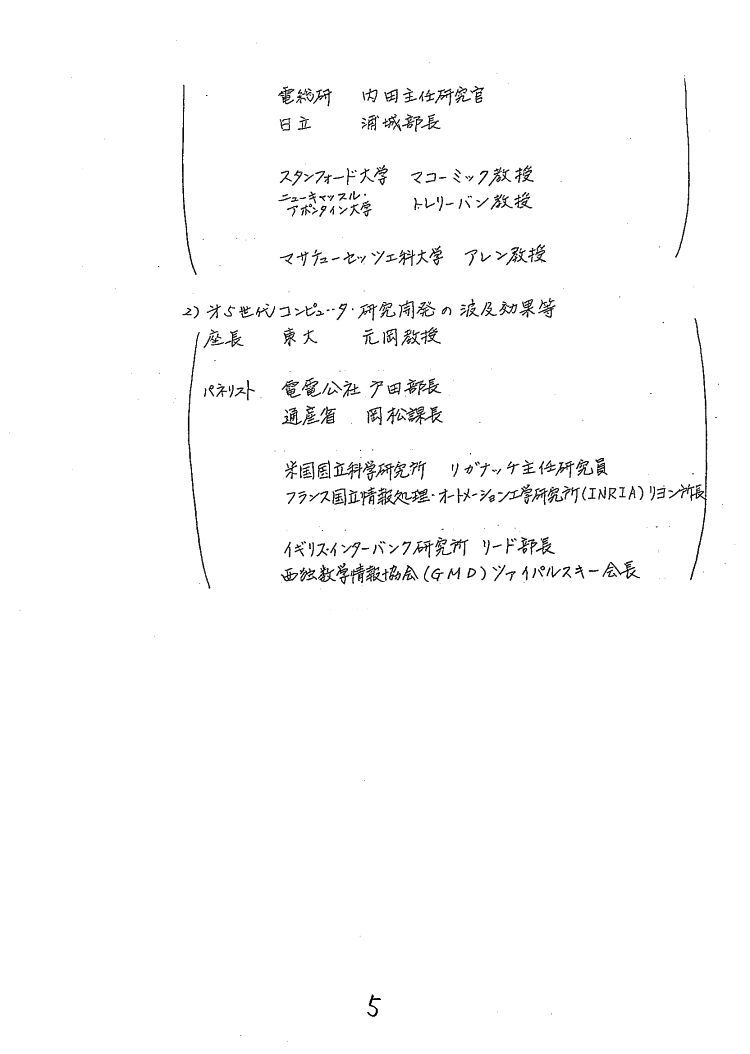 電総研 内田主任研究官
日立 浦城部長
スタンフォード大学 マコーミック教授
ニューキャッスル・
アポンタイン大学 トレリーバン教授
マサチューセッツ工科大学 アレン教授
2) 才5世代コンピュータ・研究開発の波及効果等
座長 東大 元岡教授
パネリスト 電電公社 戸田部長
通産省 岡松課長
米国国立科学研究所 リガナッケ主任研究員
フランス国立情報処理・オートメーション工学研究所(INRIA)リヨン所長
イギリス・インターバンク研究所 リード部長
西独数学情報協会(GMD)ツァイパルスキー会長
5